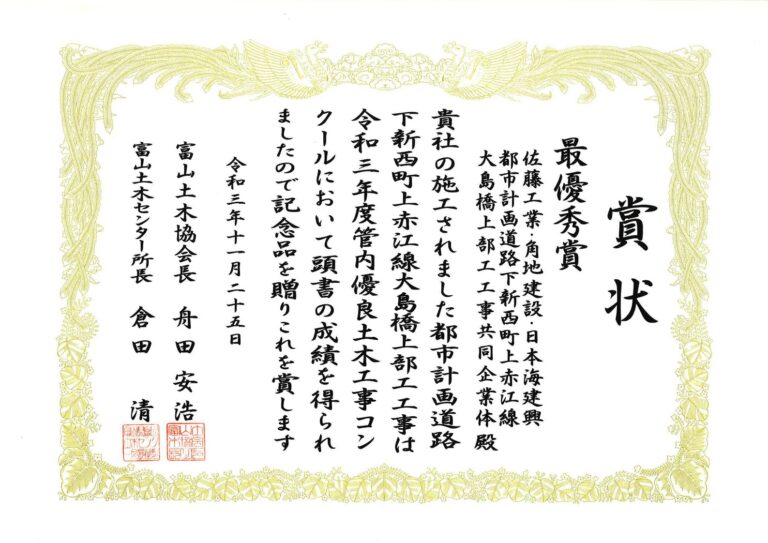 賞状
最優秀賞
佐藤工業・角地建設・日本海建興
都市計画道路下新西町上赤江線
大島橋上部工工事共同企業体殿
貴社の施工されました都市計画道路
下新西町上赤江線大島橋上部工工事は
令和三年度管内優良土木工事コン
クールにおいて頭書の成績を得られ
ましたので記念品を贈りこれを賞します
令和三年十一月二十五日
富山土木協会長 舟田安浩
富山土木センター所長 倉田清